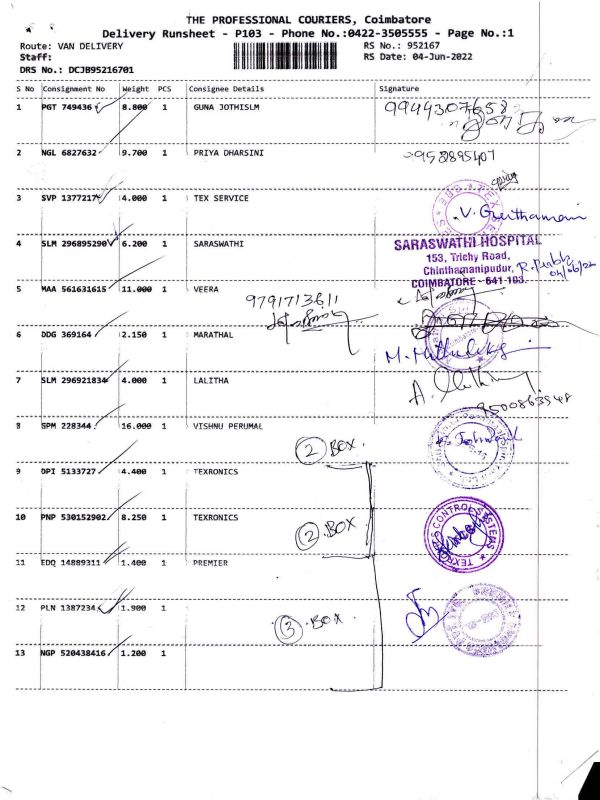 THE PROFESSIONAL COURIERS, Coimbatore
Delivery Runsheet - P103 - Phone No.:0422-3505555 - Page No.:1
Route: VAN DELIVERY RS No.: 952167
Staff: RS Date: 04-Jun-2022
DRS No.: DCJB95216701
S No Consignment No Weight PCS Consignee Details Signature
1 PGT 749436 8.800 1 GUNA JOTHISLM 9944307658
2 NGL 6827632 9.700 1 PRIYA DHARSINI
3 SVP 1377217 4.000 1 TEX SERVICE
V.
4 SLM 296895290 6.200 1 SARASWATHI SARASWATHI HOSPITAL
153, Trichy Road,
Chinthamanipudur,
COIMBATORE - 641 103.
5 MAA 561631615 11.000 1 VEERA
9791713611
6 DDG 369164 2.150 1 MARATHAL
7 SLM 296921834 4.000 1 LALITHA
9500863948
8 SPM 228344 16.000 1 VISHNU PERUMAL
2 BOX.
9 OPI 5133727 4.400 1 TEXRONICS
10 PNP 530152902 8.250 1 TEXRONICS
2 BOX
11 EDQ 14889311 1.400 1 PREMIER
12 PLN 1387234 1.900 1
3 BOX
13 NGP 520438416 1.200 1